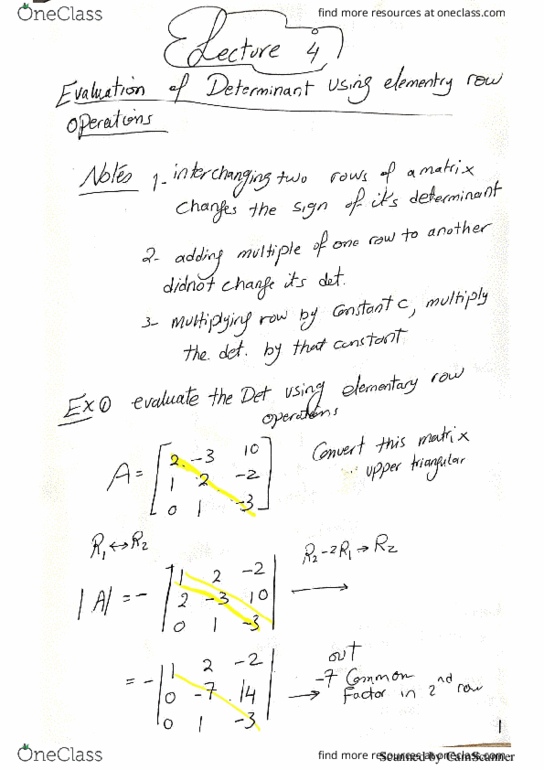 OneClass
find more resources at oneclass.com
Lecture 4
Evaluation of Determinant using elementry row
operations
Notes 1- interchanging two rows of a matrix
changes the sign of it's determinant
2- adding multiple of one row to another
didnot change its det.
3- multiplying row by constant c, multiply
the det. by that constant
Ex ① evaluate the Det using elementary row
operations
A = [ 2 -3 10
1 2 -2
0 1 -3 ]
Convert this matrix
upper triangular
R1 ↔ R2
R2 - 2R1 → R2
|A| = - | 1 2 -2
2 -3 10
0 1 -3 |
= - | 1 2 -2
0 -7 14
0 1 -3 |
out
-7 Common
Factor in 2nd row
1
OneClass
find more resources at oneclass.com
Scanned by CamScanner